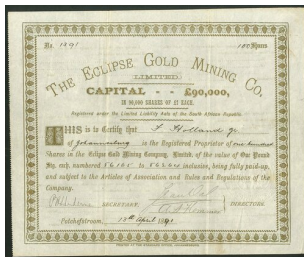 No. 1291 100 Shares
THE ECLIPSE GOLD MINING CO.
LIMITED.
CAPITAL - - £90,000,
IN 90,000 SHARES OF £1 EACH.
Registered under the Limited Liability Acts of the South African Republic.
THIS is to Certify that F Holland
of Johannesburg is the Registered Proprietor of one hundred
Shares in the Eclipse Gold Mining Company, Limited, of the value of One Pound
Stg. each, numbered to inclusive, being fully paid-up,
and subject to the Articles of Association and Rules and Regulations of the
Company.
SECRETARY. DIRECTORS.
Potchefstroom, April 1891